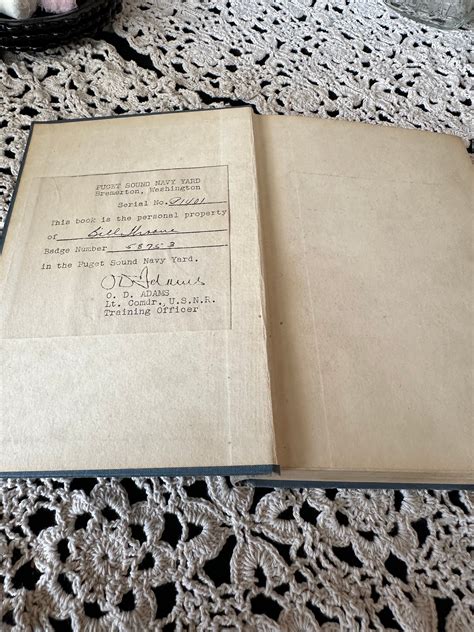 PUGET SOUND NAVY YARD
Bremerton, Washington
Serial No.
This book is the personal property
of Bill
Badge Number 58753
in the Puget Sound Navy Yard.
O D Adams
O. D. ADAMS
Lt. Comdr., U.S.N.R.
Training Officer